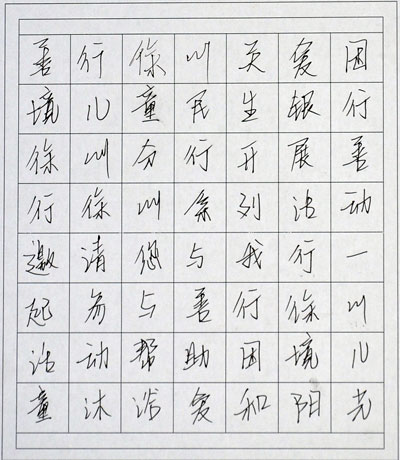 善行徐州关爱困
境儿童民生银行
徐州分行开展善
行徐州系列活动
邀请您与我行一
起参与善行徐州
活动帮助困境儿
童沐浴爱和阳光